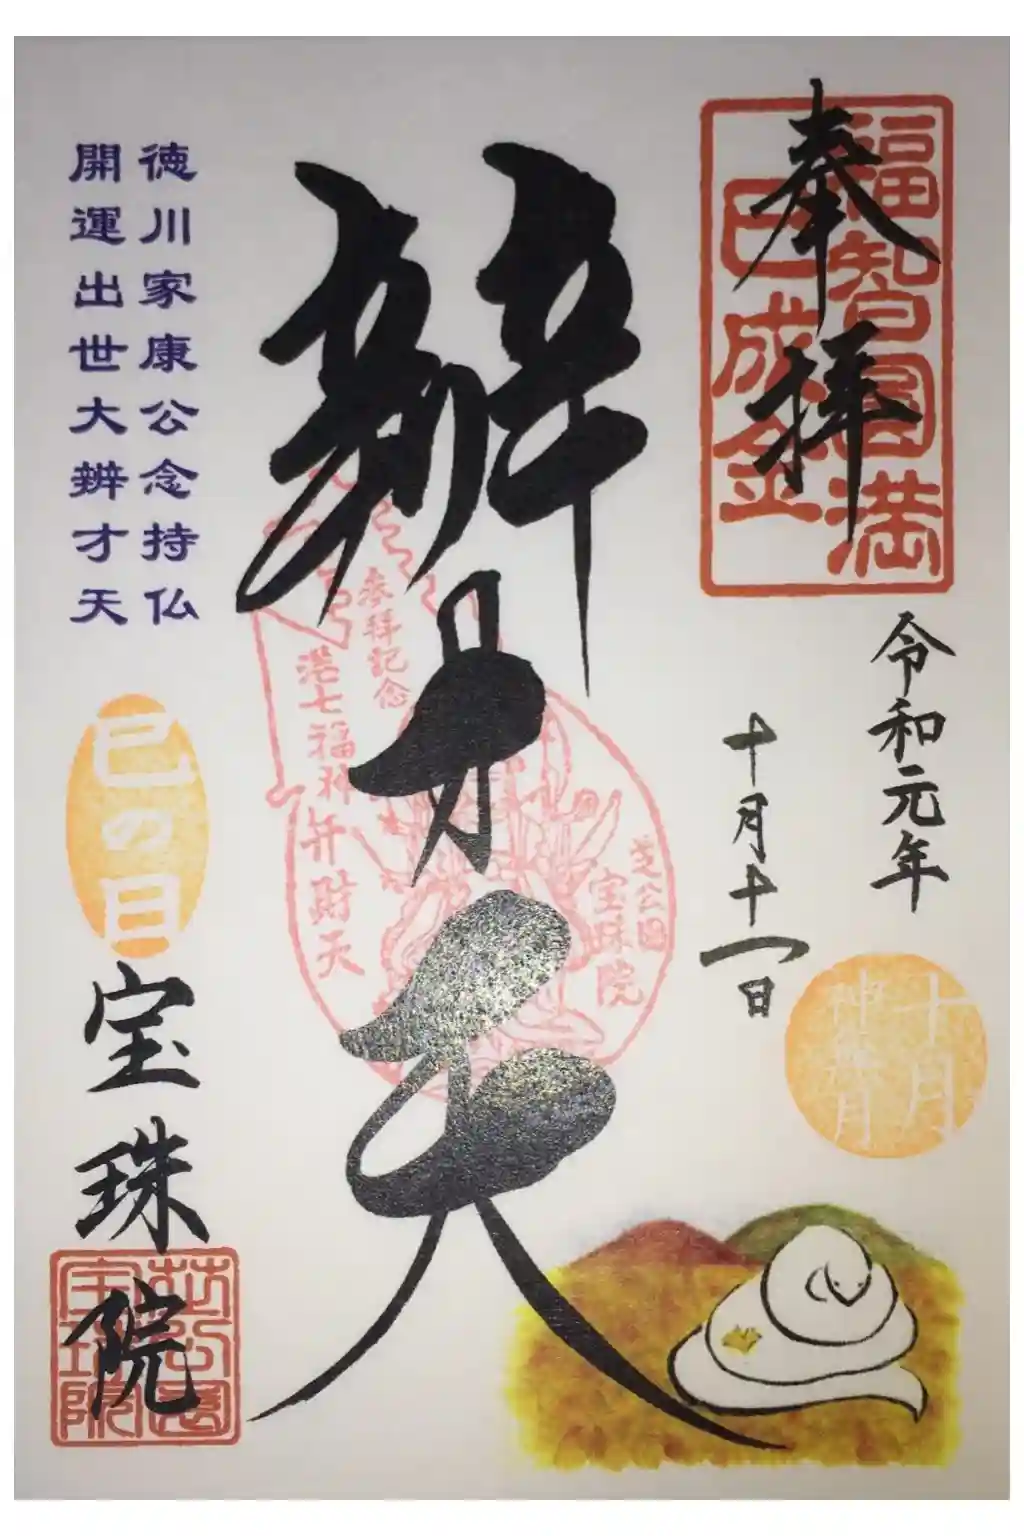 奉拝
福智円満
巳成金
令和元年
十月十一日
十月
神無月
辨才天
参拝記念
港七福神弁財天
芝公園
宝珠院
徳川家康公念持仏
開運出世大辨才天
巳の日
宝珠院
芝公園
宝珠院